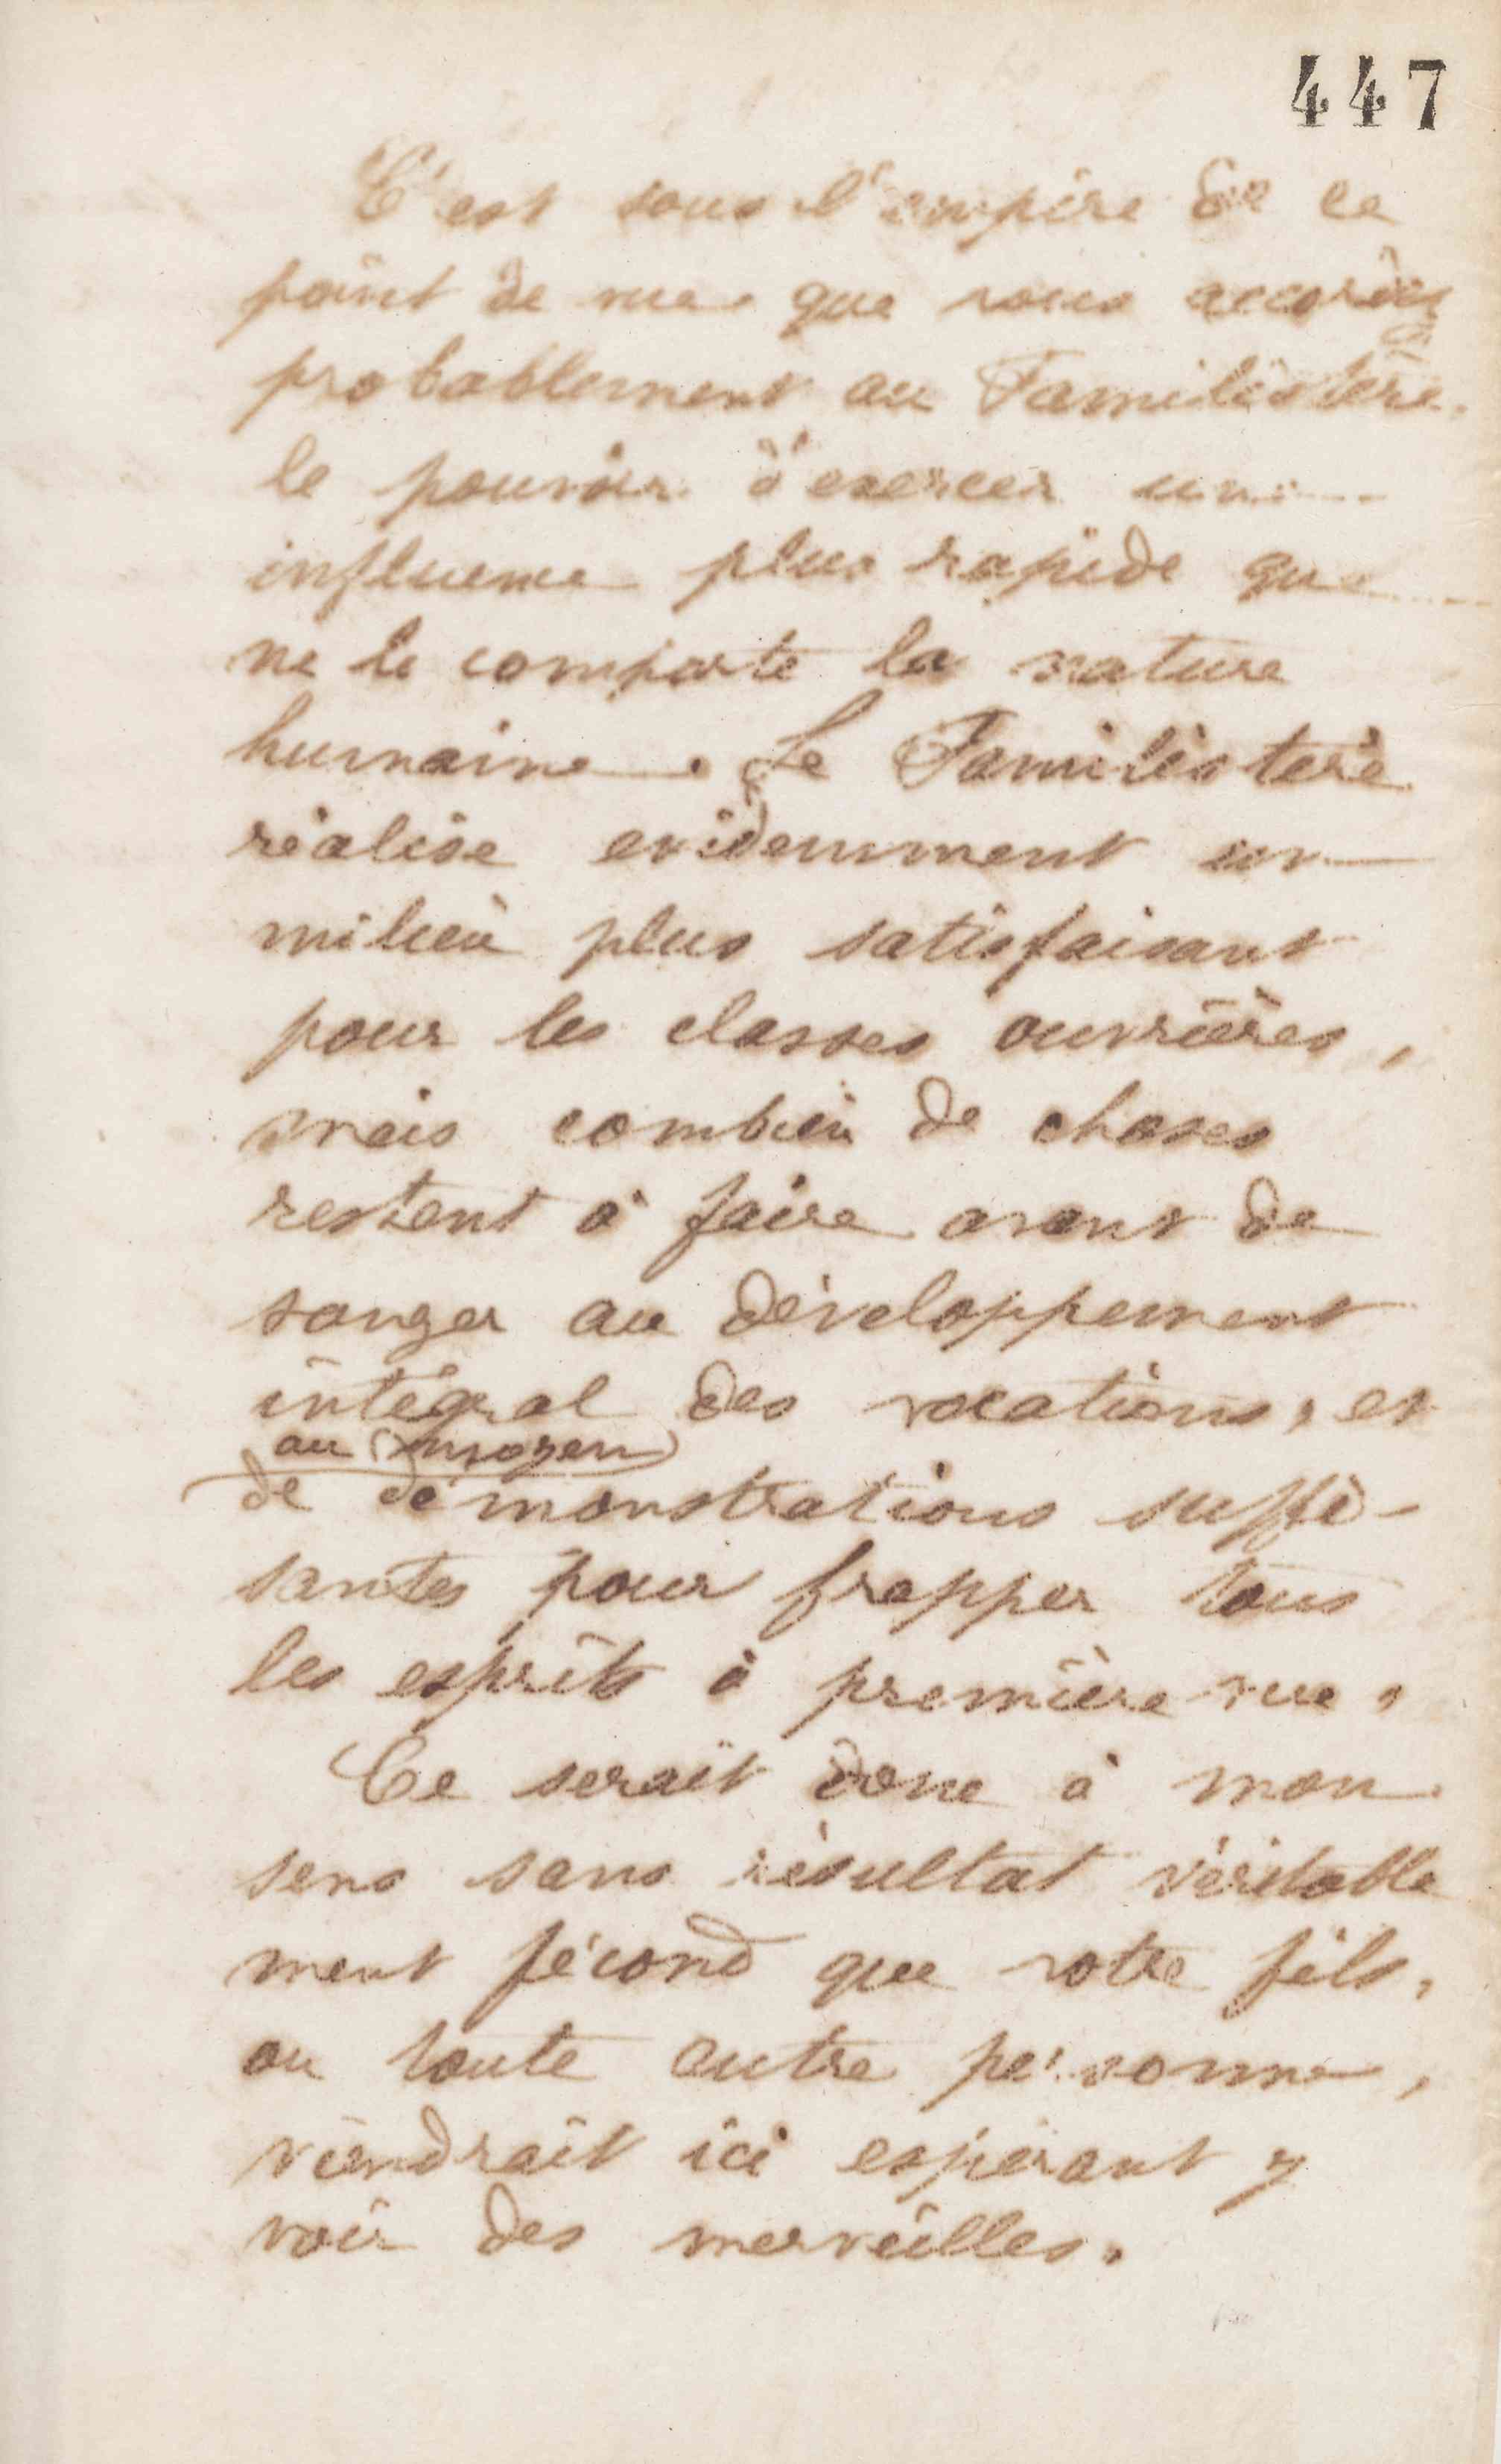 447
C'est sous l'empire de ce
point de vue que vous accordez
probablement au Familistère
le pouvoir d'exercer une
influence plus rapide que
ne le comporte la nature
humaine. Le Familistère
réalise evidemment un
milieu plus satisfaisant
pour les classes ouvrières,
mais combien de choses
restent à faire avant de
songer au développement
intégral des vocations, et
au moyen
de démonstrations suffi-
santes pour frapper tous
les esprits à première vue.
Ce serait donc à mon
sens sans résultat véritable
ment fécond que votre fils,
ou toute autre personne,
viendrait ici espérant y
voir des merveilles.